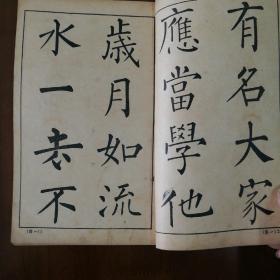 有名大家
應當學他
歲月如流
水一去不